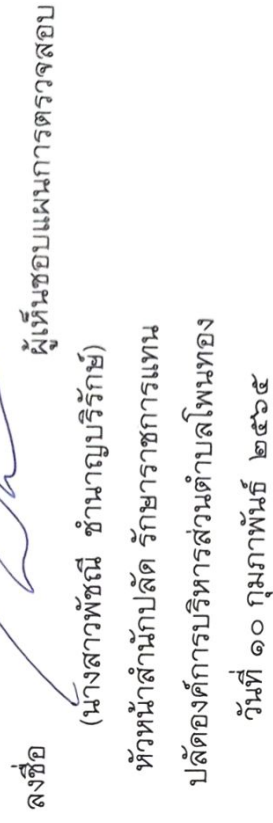 ลงชื่อ ผู้เห็นชอบแผนการตรวจสอบ
(นางสาวพัชณี ชำนาญบริรักษ์)
หัวหน้าสำนักปลัด รักษาราชการแทน
ปลัดองค์การบริหารส่วนตำบลโพนทอง
วันที่ ๑๐ กุมภาพันธ์ ๒๕๖๕